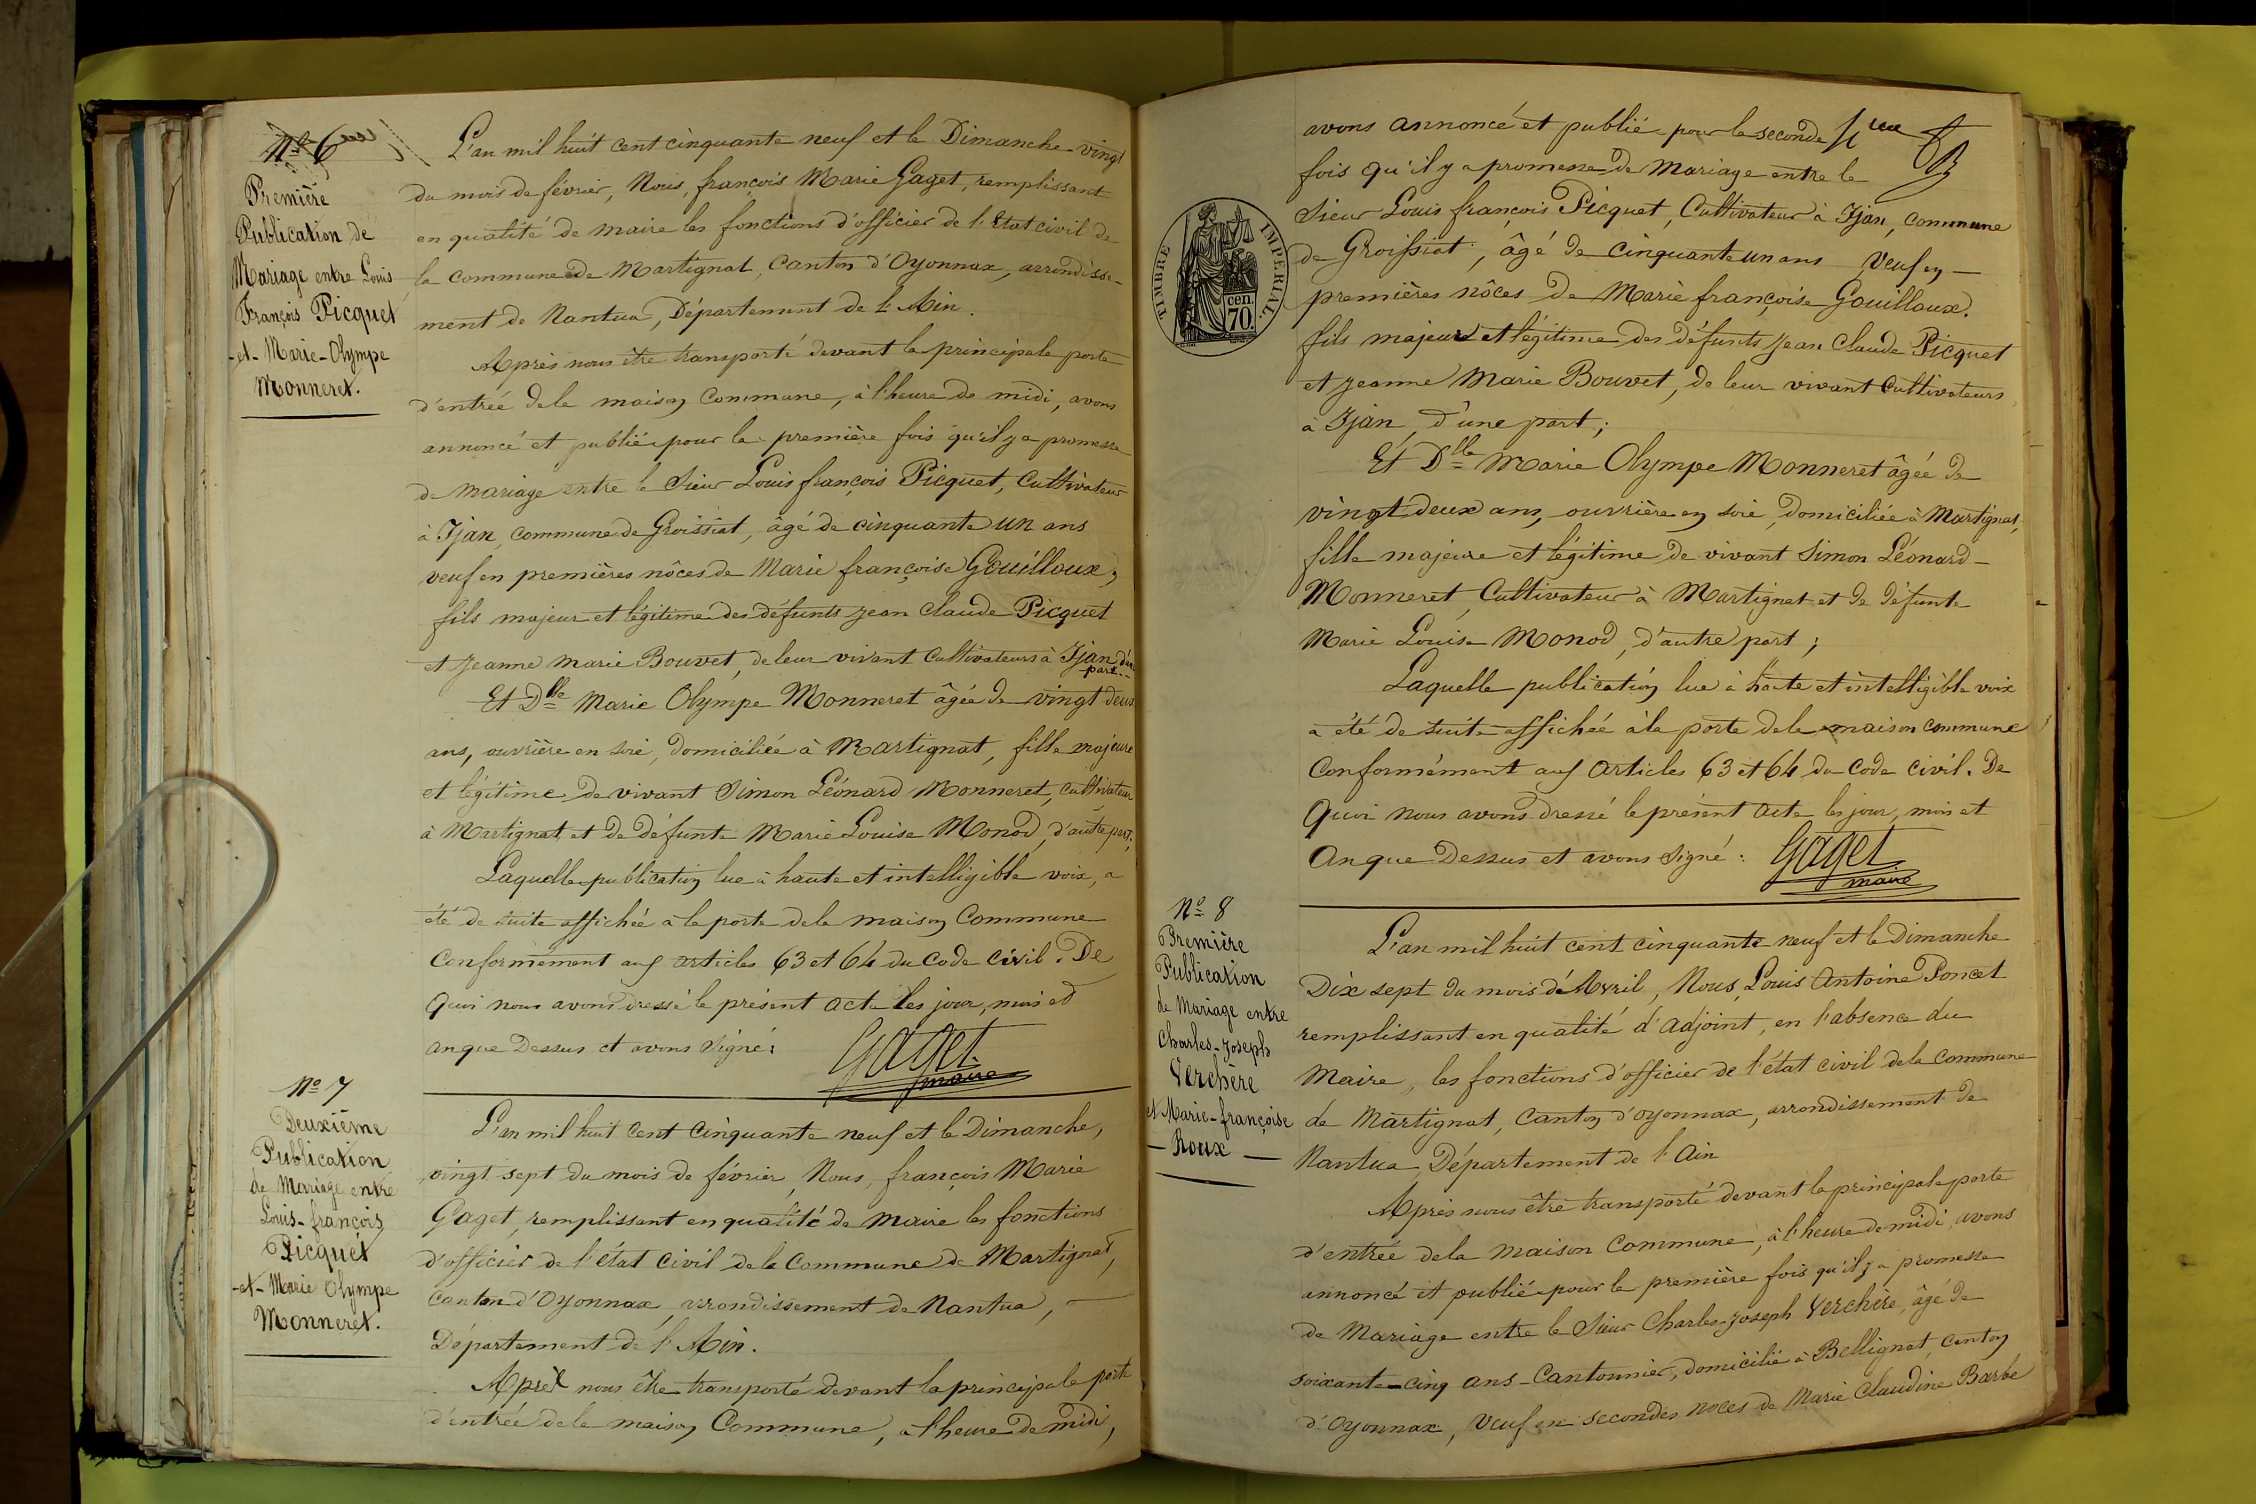 Nº 6
Première
Publication de
Mariage entre Louis
François Picquet
-et- Marie-Olympe
Monneret.
L'an mil huit cent cinquante neuf et le Dimanche vingt
du mois de février, Nous, françois Marie Gaget, remplissant
en qualité de maire les fonctions d'officier de l'Etat civil de
la commune de Martignat, Canton d'Oyonnax, arrondisse-
ment de Nantua, Département de l'Ain.
Après nous être transporté devant la principale porte
d'entrée de la maison Commune, à l'heure de midi, avons
annoncé et publié pour la première fois qu'il y a promesse
de mariage entre le Sieur Louis françois Picquet, Cultivateur
à Ijan, commune de Groissiat, âgé de cinquante un ans
veuf en premières nôces de Marie françoise Gouilloux,
fils majeur et légitime des défunts jean Claude Picquet
et jeanne Marie Bouvet, de leur vivant Cultivateurs à Ijan d'une
part..
Et Dlle Marie Olympe Monneret âgée de vingt deux
ans, ouvrière en soie, domiciliée à Martignat, fille majeure
et légitime de vivant Simon Léonard Monneret, Cultivateur
à Martignat et de défunte Marie Louise Monod, d'autre part;
Laquelle publication lue à haute et intelligible voix, a
été de suite affichée à la porte de la maison Commune
Conformément aux articles 63 et 64 du Code Civil. De
Quoi nous avons dressé le présent acte les jour, mois et
an que Dessus et avons Signé:
Gaget
maire
Nº 7
Deuxième
Publication
de Mariage entre
Louis-françois
Picquet
-et- Marie Olympe
Monneret.
L'an mil huit Cent Cinquante neuf et le Dimanche,
vingt sept du mois de février, Nous, françois Marie
Gaget, remplissant en qualité de Maire les fonctions
d'officier de l'état Civil de la Commune de Martignat,
Canton d'Oyonnax, arrondissement de Nantua,
Département de l'Ain.
Après nous être transporté devant la principale porte
d'entrée de la maison Commune, à l'heure de midi,
avons annoncé et publié pour la seconde
fois qu'il y a promesse de Mariage entre le
Sieur Louis françois Picquet, Cultivateur à Ijan, commune
de Groissiat, âgé de cinquante un ans Veuf en
premières nôces de Marie françoise Gouilloux.
fils majeur et légitime des défunts jean Claude Picquet
et jeanne Marie Bouvet, de leur vivant Cultivateurs
à Ijan, d'une part;
Et Dlle Marie Olympe Monneret âgée de
vingt deux ans, ouvrière en soie, domiciliée à Martignat,
fille majeure et légitime de vivant Simon Léonard
Monneret, Cultivateur à Martignat et de défunte
Marie Louise Monod, d'autre part;
Laquelle publication lue à haute et intelligible voix
a été de suite affichée à la porte de la maison commune
Conformément aux articles 63 et 64 du Code Civil. De
Quoi nous avons dressé le présent acte les jour, mois et
an que Dessus et avons signé:
Gaget
maire
TIMBRE IMPERIAL.
cen.
70.
Nº 8
Première
Publication
de Mariage entre
Charles-Joseph
Verchère
et Marie-françoise
Roux
L'an mil huit cent cinquante neuf et le Dimanche
Dix sept du mois d'Avril, Nous, Louis Antoine Poncet
remplissant en qualité d'adjoint, en l'absence du
Maire, les fonctions d'officier de l'état civil de la commune
de Martignat, Canton d'Oyonnax, arrondissement de
Nantua Département de l'Ain
Après nous être transporté devant la principale porte
d'entrée de la maison Commune, à l'heure de midi, avons
annoncé et publié pour la première fois qu'il y a promesse
de Mariage entre le Sieur Charles-Joseph Verchère, âgé de
soixante-cinq ans-Cantonnier, domicilié à Bellignat, Canton
d'Oyonnax, Veuf en secondes noces de Marie Claudine Barbe